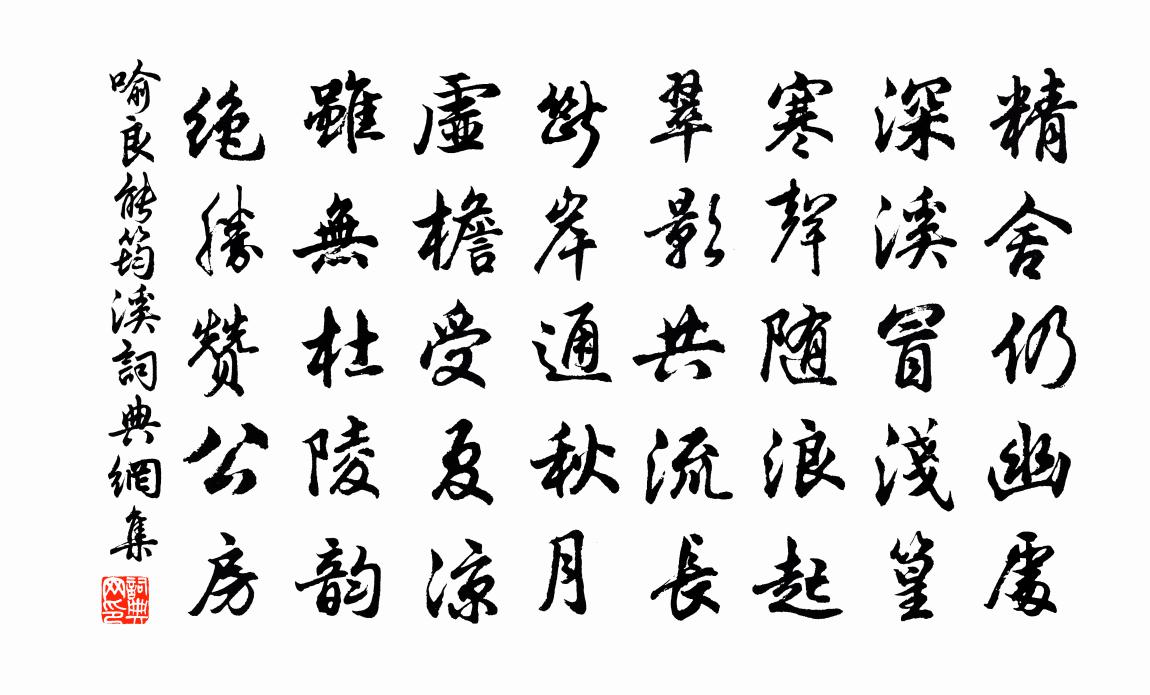 精舍仍幽處
深溪冒淺篁
寒聲随浪起
翠影共流長
斷岸通秋月
虛檐受夏凉
雖無杜陵韵
絶勝贊公房
喻良能筠溪詞典網集
詞典
网印